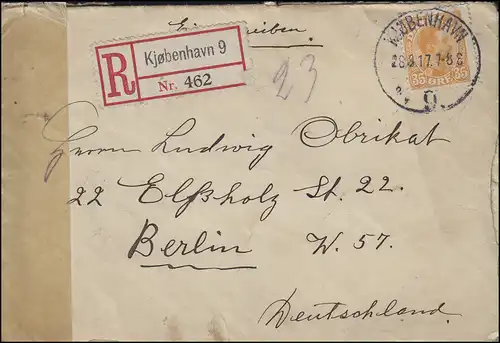 Einschreiben
R
Kjøbenhavn 9
Nr. 462
23
KJØBENHAVN
28.8.17. 7-8 E
9.
35 ØRE 35
Herrn Ludwig Obrikat
22 Elßholz St. 22.
Berlin W. 57.
Deutschland.